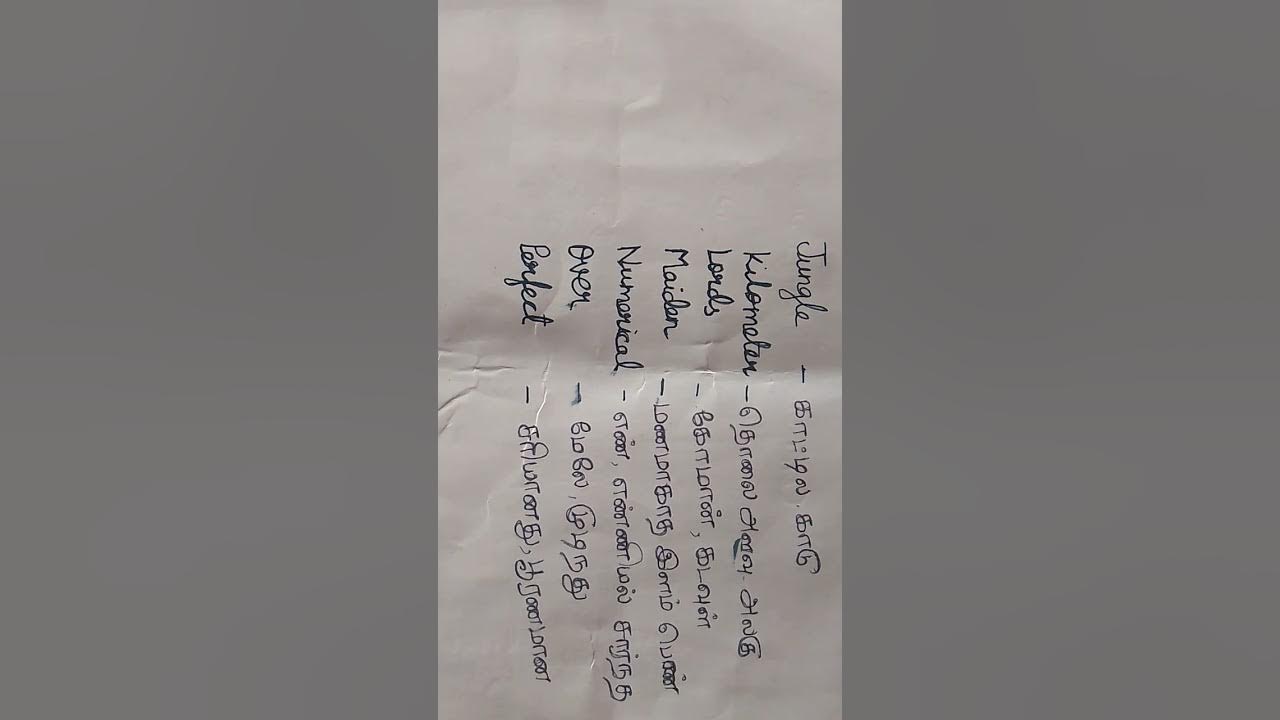 Jungle - காட்டில. காடு
Kilometer - தொலை அளவு. அலகு
Lords - கோமான், கடவுள்
Maiden - மணமாகாத இளம் பெண்
Numerical - எண், எண்ணியல் சார்ந்த
Over - மேலே, முடிந்து
Perfect - சரியானது, பூரணமான